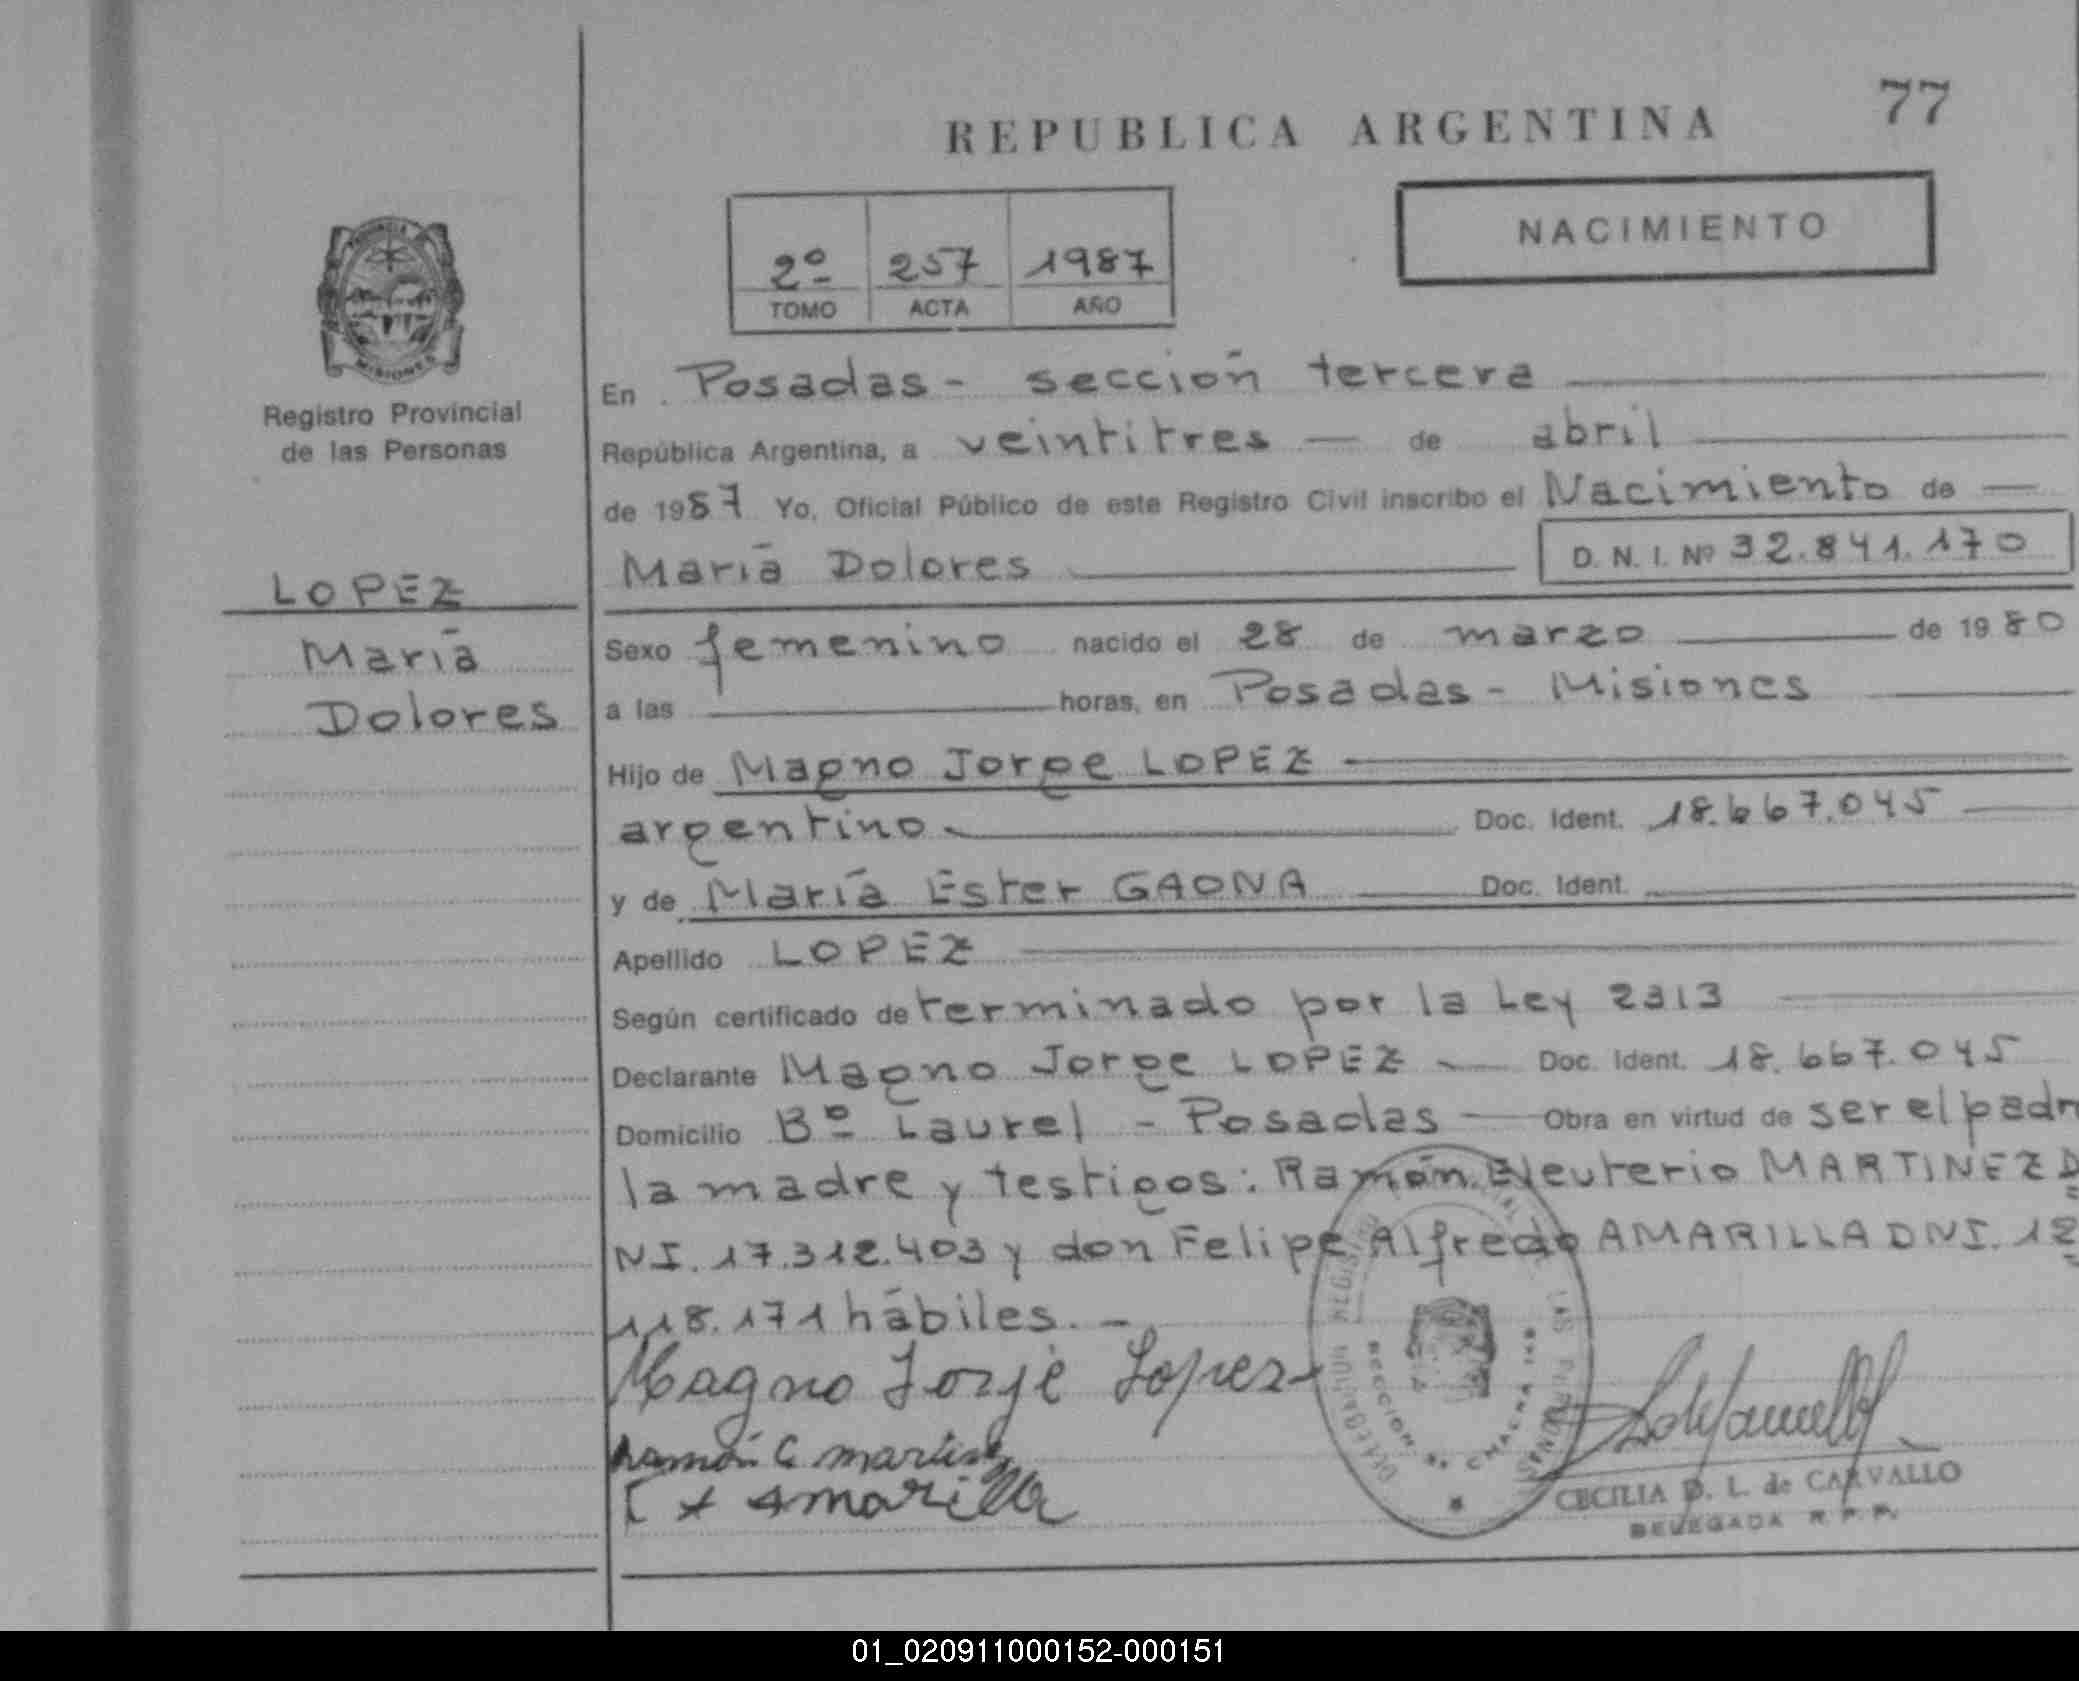 77
REPUBLICA ARGENTINA
NACIMIENTO
2º 257 1987
TOMO ACTA AÑO
MISIONES
Registro Provincial
de las Personas
LOPEZ
María
Dolores
En Posadas - sección tercera
República Argentina, a veintitres — de abril
de 1987 Yo, Oficial Público de este Registro Civil inscribo el Nacimiento de —
María Dolores D. N. I. Nº 32.841.170
Sexo femenino nacido el 28 de marzo de 1980
a las horas, en Posadas - Misiones
Hijo de Magno Jorge LOPEZ
argentino Doc. Ident. 18.667.045
y de María Ester GAONA Doc. Ident.
Apellido LOPEZ
Según certificado de terminado por la Ley 2313
Declarante Magno Jorge LOPEZ — Doc. Ident. 18.667.045
Domicilio Bº Laurel - Posadas — Obra en virtud de ser el padr
la madre y testigos: Ramón Eleuterio MARTINEZ D
NI. 17.312.403 y don Felipe Alfredo AMARILLA DNI. 12
118.171 hábiles. -
Magno Jorje Lopez
Ramón E martinez
Amarilla
CECILIA D. L. de CARVALLO
DELEGADA R. P. P.
01_020911000152-000151